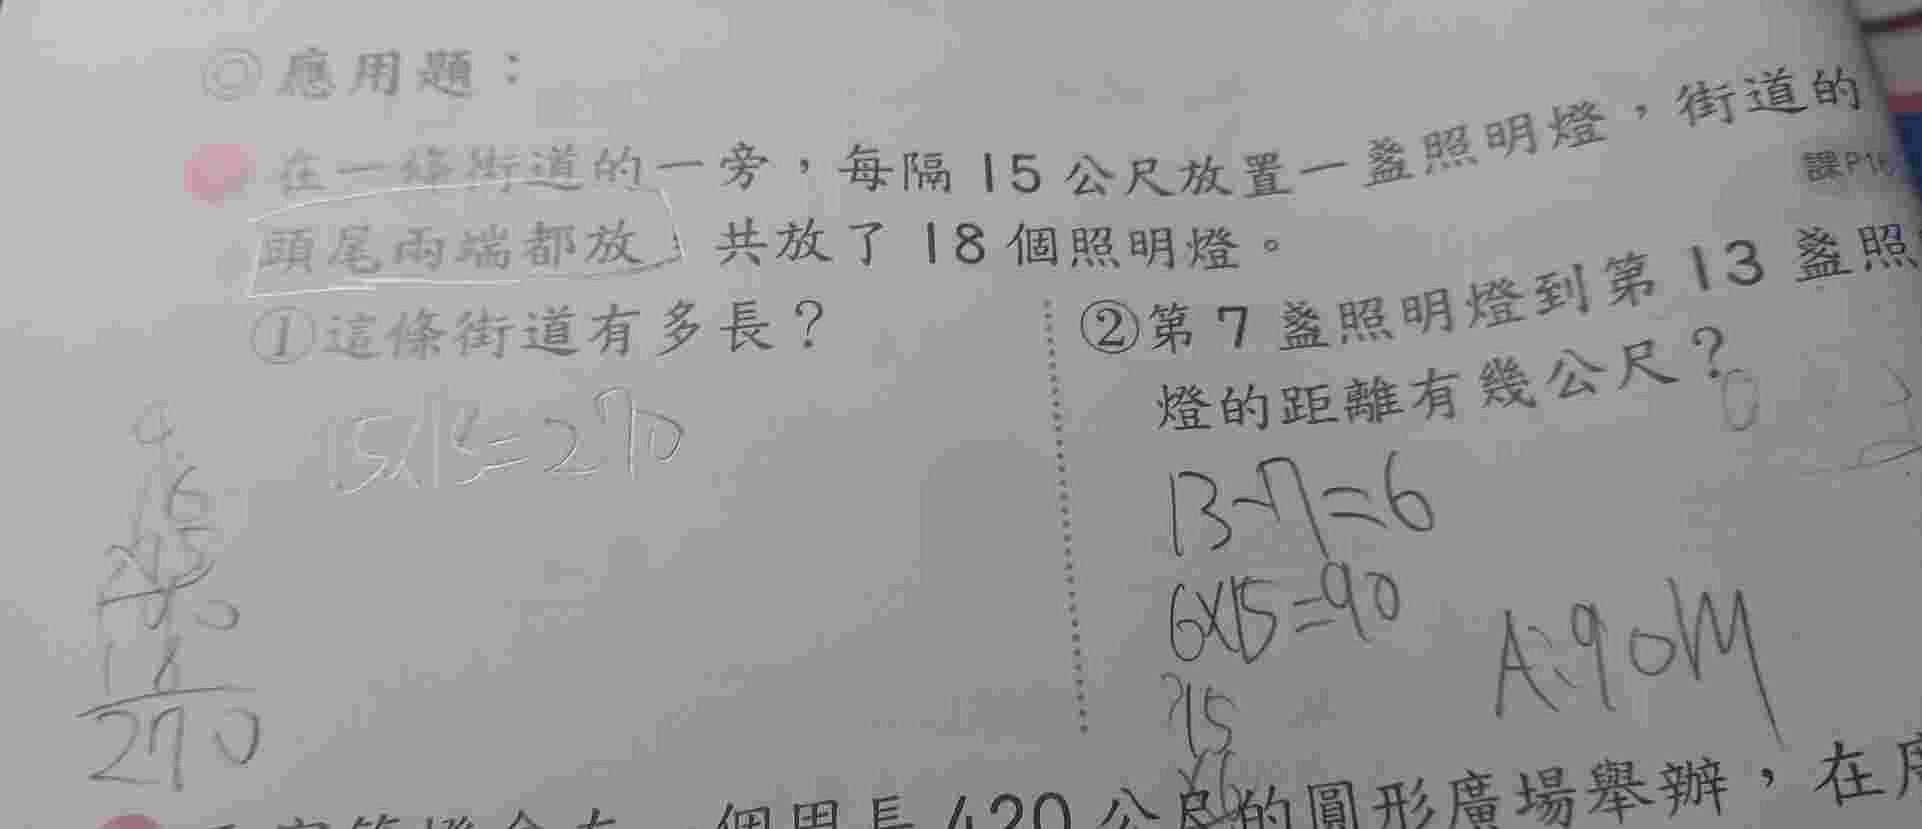 ◎應用題：
在一條街道的一旁，每隔15公尺放置一盞照明燈，街道的
課P16
頭尾兩端都放，共放了18個照明燈。
①這條街道有多長？
15×18=270
270
②第7盞照明燈到第13盞照
燈的距離有幾公尺？
13-7=6
6×15=90
A:90M
15
×6
個周長420公尺的圓形廣場舉辦，在